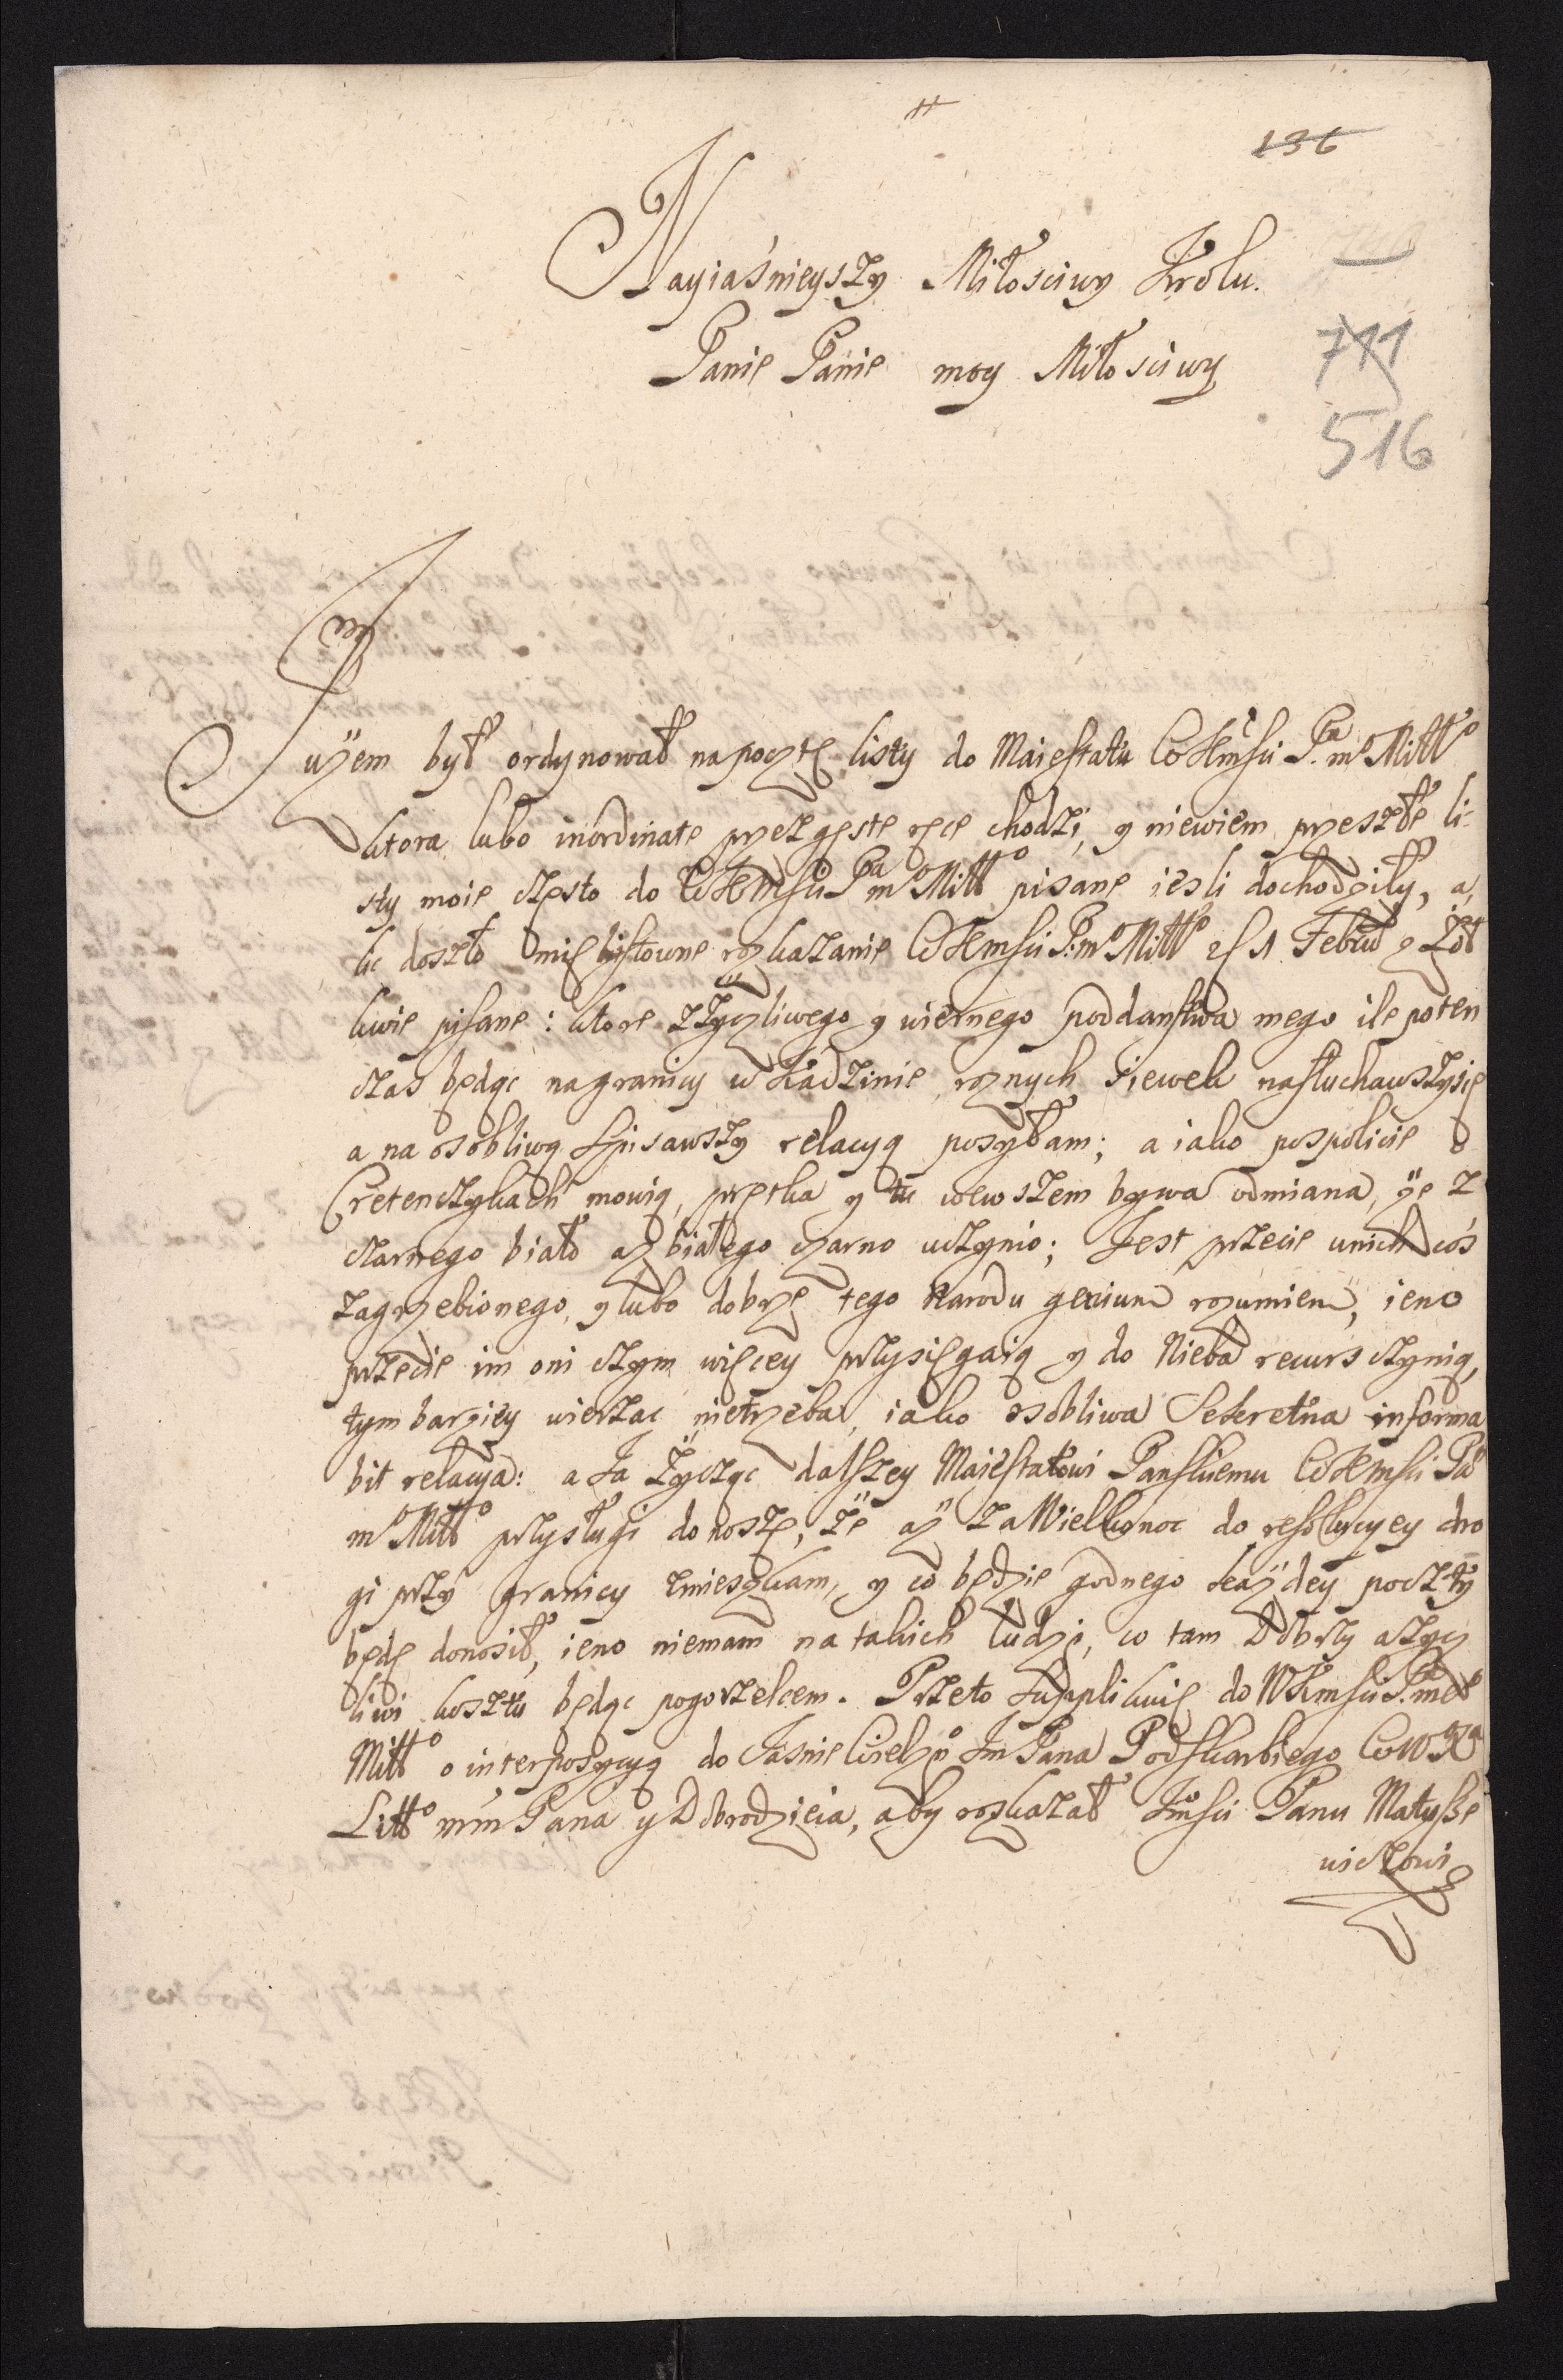 136
Nayiaśnieyszy Miłosciwy Krolu.
711
Panie Panie moy Miłosciwy
516
Juzem był ordynował napocztę listy do Maiestatu WKmsci Pa. mo Miłło
ktora lubo inordinate przez gęste ręce chodzi, y niewiem przeszłe li-
sty moie często do WKmsci Pa mo Miłło pisane iesli dochodziły, a
lic doszło mię listowne rozkazanie WKmsci P: mo Miłło 1 Febru y Zoł
kwie pisane: ktore z zyczliwego y wiernego poddanstwa mego ile poten
czas będąc nagranicy w Kadzinie, roznych siewek nasłuchawszysię
a na osobliwą spisawszy relacyą posyłam; a iako pospolicie o
Cretenczykach mowią, prętka y tu wewszem bywa odmiana, ze z
czarnego biało a z białego czarno uczynio; Jest przecie unich cos
zagrzebionego, y lubo dobrze tego Narodu genium rozumiem, ieno
przecie im oni czym więcey przysięgaią y do Nieba recurs czynią,
tym barziey wierzac nietrzeba, iako osobliwa Sekretna informa
bit relacya: a Ja życząc dalszey Maiestatowi Panskiemu WKmsci Pa
mo Miłło przysługi donoszę, że aż za Wielkonoc do resolucyey dro
gi przy granicy zmieszkam, y co będzie godnego każdey poczty
będę donosił, ieno niemam na takich ludzi, co tam dobrzy a zycz
liwi kosztu będąc pogorzelcem. Przeto supplikuię do WKmsci P. mo
Miłło o interpozycyą do Jasnie Wielzo Jm Pana Podskarbiego WoWXa
Litto mm Pana y Dobrodzieia, aby rozkazał Jmsci Panu Matysse
wiczowi